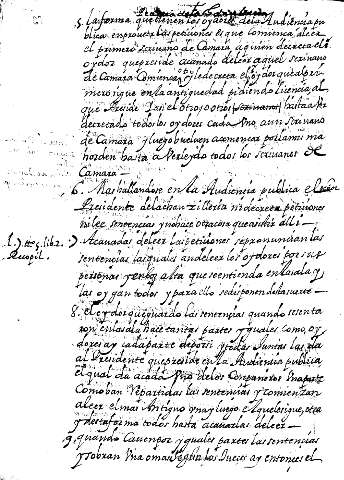 5. la forma que tienen los oydores dela Audiencia pu
blica en proveer las peticiones es que comiença a leer
el primero scrivano de Camara a quien decreta el o
oydor que preside acavado de leer aquel scrivano
de Camara Comiença y le decreta el oydor que da pri
mero sigue en la antiguedad pidiendo licencia al
que Preside
decretado todos los oydores cada Uno a un scrivano
de Camara y luego buelven a comenzar por la mis ma
horden hasta aver leydo todos los scrivanos de
Camara
6. Mas hallandose en la Audiencia publica el señor
Presidente dela chanzilleria ni decreta peticiones
ni lee sentencias y no hace otra cosa que asistir alli
l. 7 tt. 5. lib. 2.
Recopil.
7. Acavadas de leer las peticiones se pronuncian las
sentencias las quales an de leer los oydores por sus
personas y en voz alta que se entienda en la sala y
las oygan todos y para ello se disponen desta suerte
8. el oydor que guardo las sentencias quando se vota
ron en las da hace tantas partes y guales como oy
dores ay i a cada parte de por si y todas Juntas las da
al Presidente que preside en la Audiencia publica
el qual da a cada Uno de los Compañeros Una parte
Como ban Repartidas las sentencias y comienzan
a leer el mas Antiguo una y luego el que le sigue, otra
y desta forma todos hasta acavarlas de leer
9. quando Caven por yguales partes las sentencias
y sobran Una o mas segun los Jueces ay entonces el